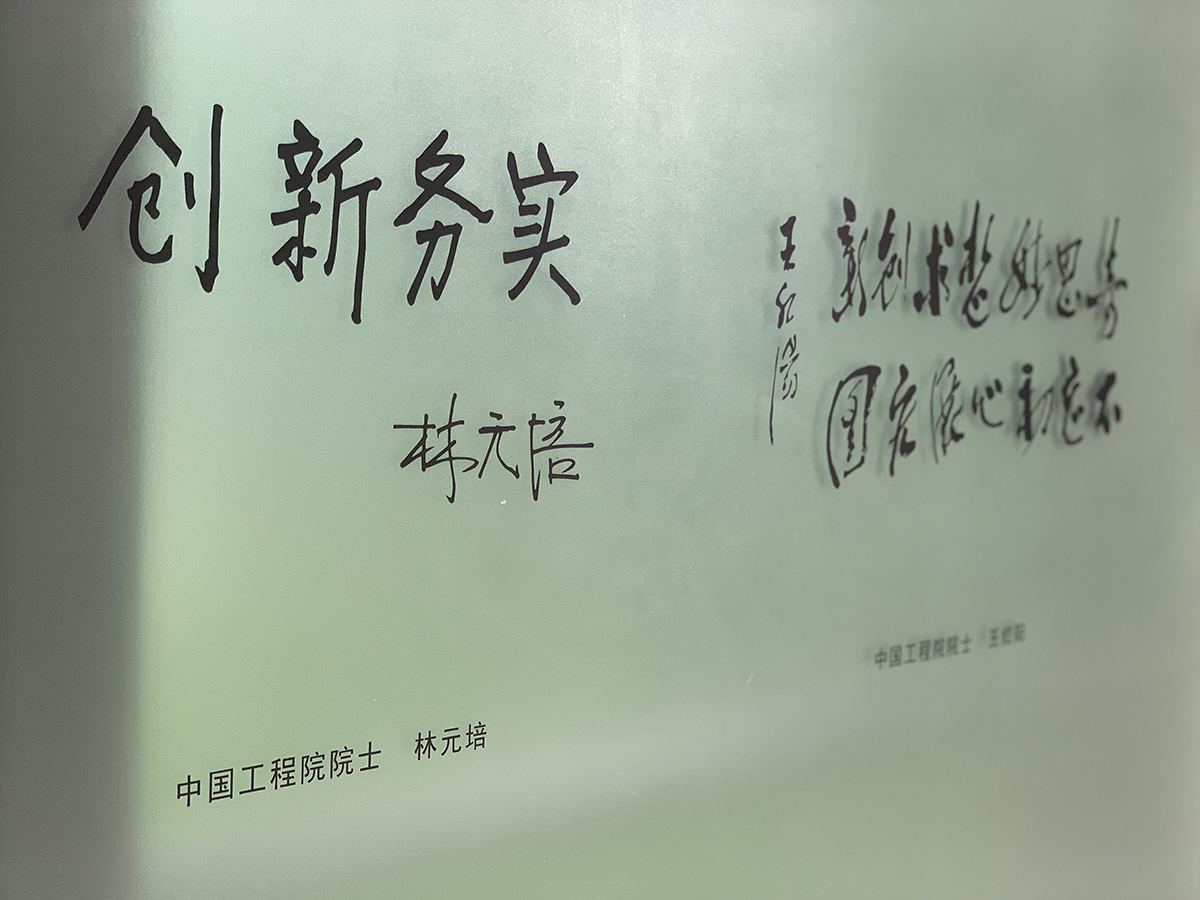 创新务实
林元培
中国工程院院士 林元培
奇思妙想求创新
不忘初心展宏图
王红阳
中国工程院院士 王红阳